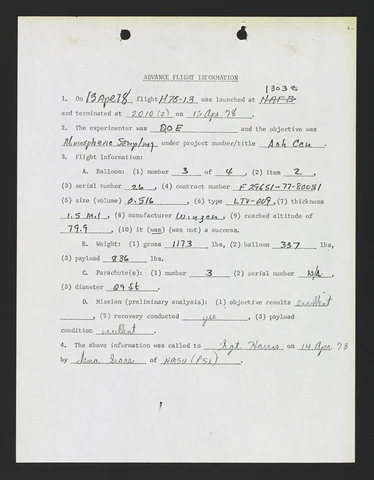 ADVANCE FLIGHT INFORMATION
1303 z
1. On 13 Apr 78 flight H78-13 was launched at HAFB
and terminated at 2010 (z) on 13 Apr. 78.
2. The experimenter was DOE and the objective was
Atmospheric Sampling under project number/title Ash Can.
3. Flight Information:
A. Balloon: (1) number 3 of 4, (2) item 2,
(3) serial number 26, (4) contract number F29651-77-80081
(5) size (volume) 0.516, (6) type LTV-009, (7) thickness
1.5 Mil, (8) manufacturer Winzen, (9) reached altitude of
79.9, (10) it (was) (was not) a success.
B. Weight: (1) gross 1173 lbs, (2) balloon 337 lbs,
(3) payload 836 lbs.
C. Parachute(s): (1) number 3 (2) serial number N/A,
(3) diameter 09 ft.
D. Mission (preliminary analysis): (1) objective results excellent
, (2) recovery conducted yes, (3) payload
condition excellent.
4. The above information was called to Sgt Harris on 14 Apr 78
by of NMSU (PSL)